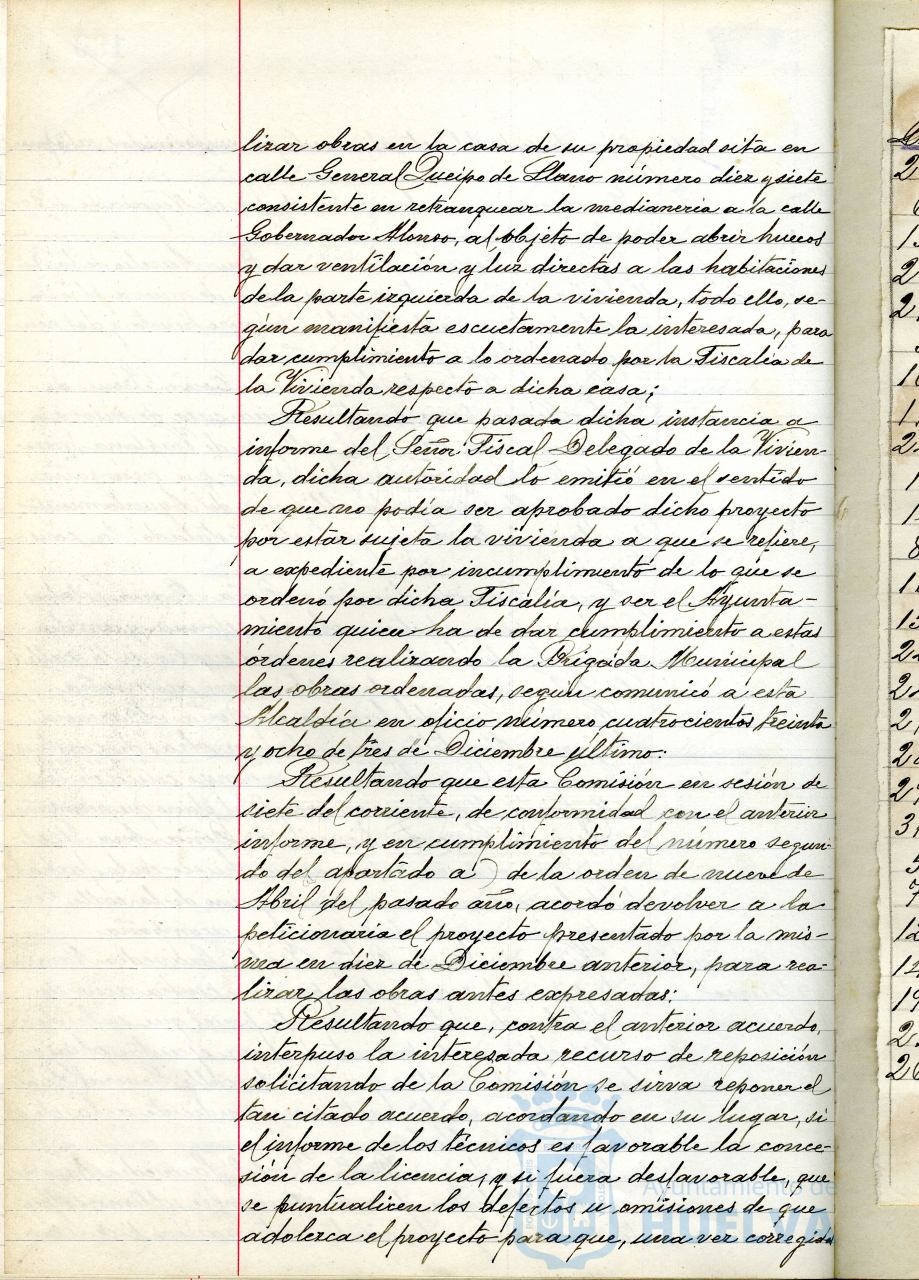 lizar obras en la casa de su propiedad sita en
calle General Queipo de Llano número diez y siete
consistente en retranquear la medianeria a la calle
Gobernador Alonso, al objeto de poder abrir huecos
y dar ventilación y luz directas a las habitaciones
de la parte izquierda de la vivienda, todo ello, se-
gún manifiesta escuetamente la interesada, para
dar cumplimiento a lo ordenado por la Fiscalía de
la Vivienda respecto a dicha casa;
Resultando que pasada dicha instancia a
informe del Señor Fiscal Delegado de la Vivien-
da, dicha autoridad lo emitió en el sentido
de que no podía ser aprobado dicho proyecto
por estar sujeta la vivienda a que se refiere,
a expediente por incumplimiento de lo que se
ordenó por dicha Fiscalía, y ser el Ayunta-
miento quien ha de dar cumplimiento a estas
órdenes realizando la Brigada Municipal
las obras ordenadas, según comunicó a esta
Alcaldía en oficio número cuatrocientos treinta
y ocho de tres de Diciembre último:
Resultando que esta Comisión en sesión de
siete del corriente, de conformidad con el anterior
informe, y en cumplimiento del número segun-
do del apartado a) de la orden de nueve de
Abril del pasado año, acordó devolver a la
peticionaria el proyecto presentado por la mis-
ma en diez de Diciembre anterior, para rea-
lizar las obras antes expresadas:
Resultando que, contra el anterior acuerdo,
interpuso la interesada recurso de reposición
solicitando de la Comisión se sirva reponer el
tan citado acuerdo, acordando en su lugar, si
el informe de los técnicos es favorable la conce-
sión de la licencia, y si fuera desfavorable, que
se puntualicen los defectos u omisiones de que
adolezca el proyecto para que, una vez corregida
Ayuntamiento de
HUELVA